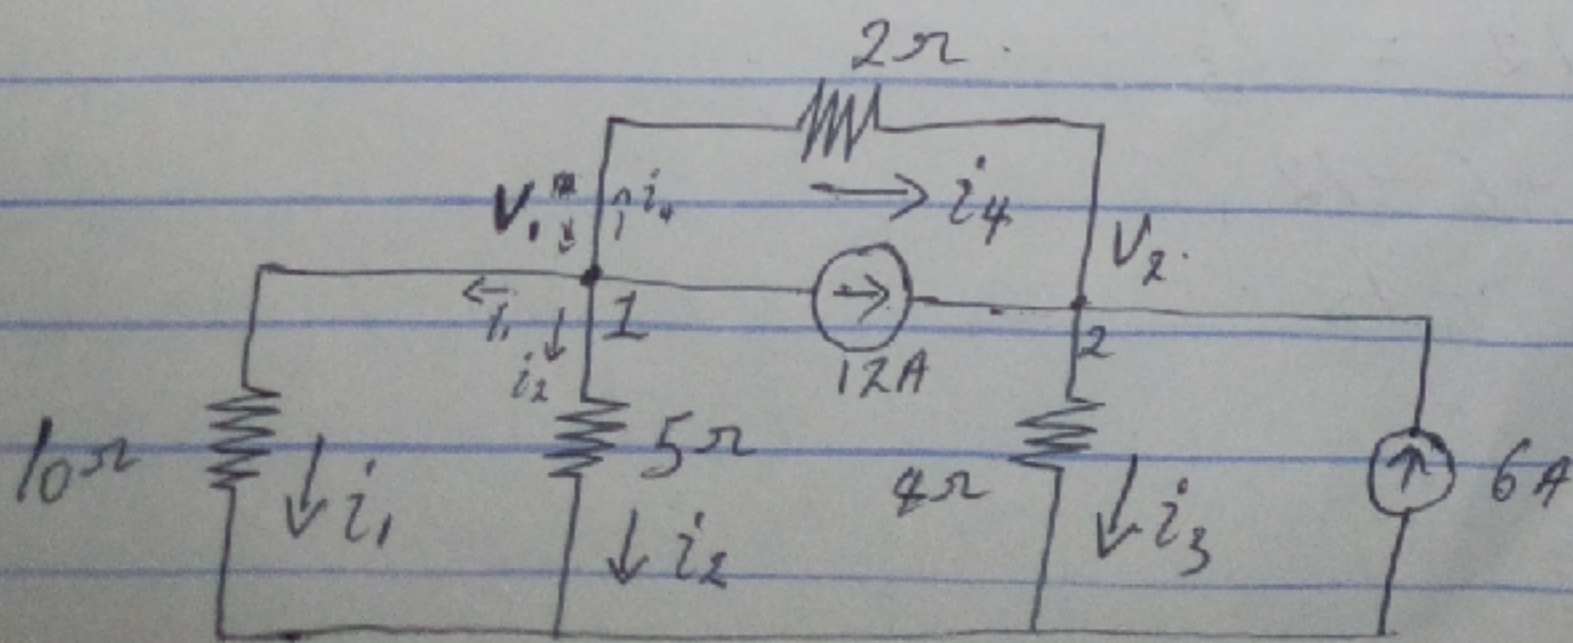 2Ω
V₁ i₄ i₄ V₂
i₁ i₂ 1 12A 2
10Ω i₁ 5Ω i₂ 4Ω i₃ 6A